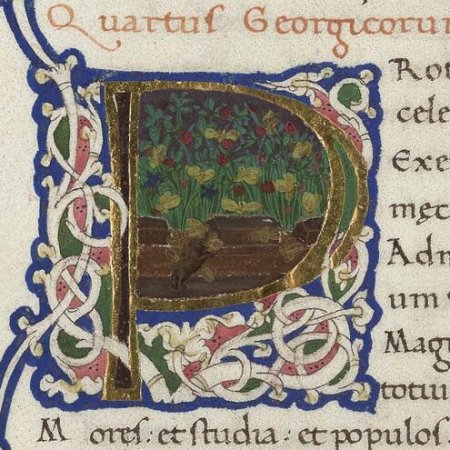 Quartus Georgicorum
P Rot
cele
Exe
męc
Adm
um
Mag
totiu
M ores: et studia: et populos